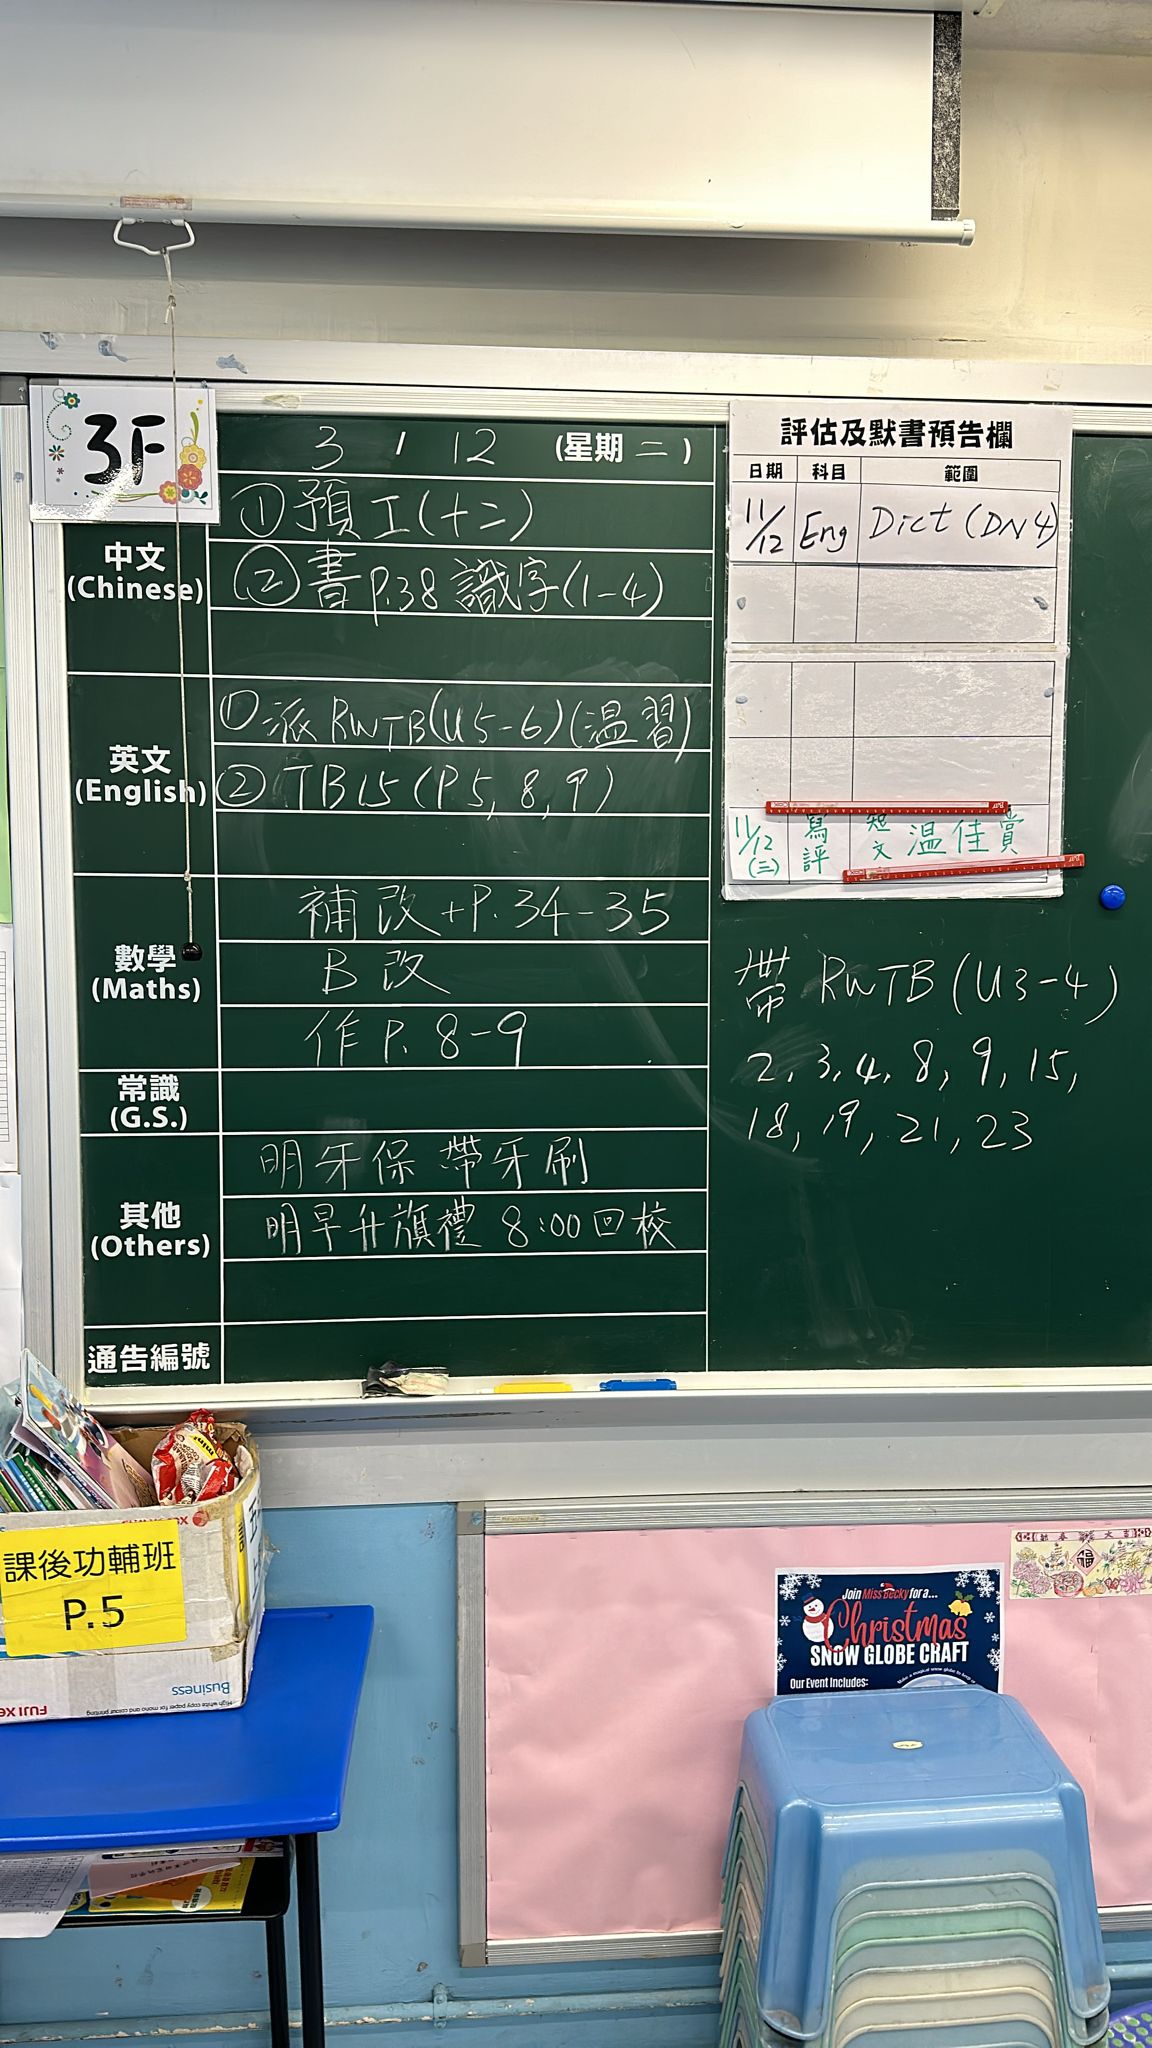 3F
3 / 12 (星期 二)
中文
(Chinese)
①預工(十二)
②書P.38 識字(1-4)
英文
(English)
①派 RWTB(U5-6)(温習)
②TB15(P5,8,9)
數學
(Maths)
補改+P.34-35
B改
作P.8-9
常識
(G.S.)
其他
(Others)
明牙保 帶牙刷
明早升旗禮 8:00回校
通告編號
評估及默書預告欄
日期 科目 範圍
11/12 Eng Dict (DN4)
11/12(三) 寫評 短文 温佳賞
帶 RWTB (U3-4)
2, 3, 4, 8, 9, 15,
18, 19, 21, 23
課後功輔班
P.5
Business
High white copy paper for mono and colour printing
FUJI Xe
Join Miss Becky for a...
Christmas
SNOW GLOBE CRAFT
Our Event Includes:
福